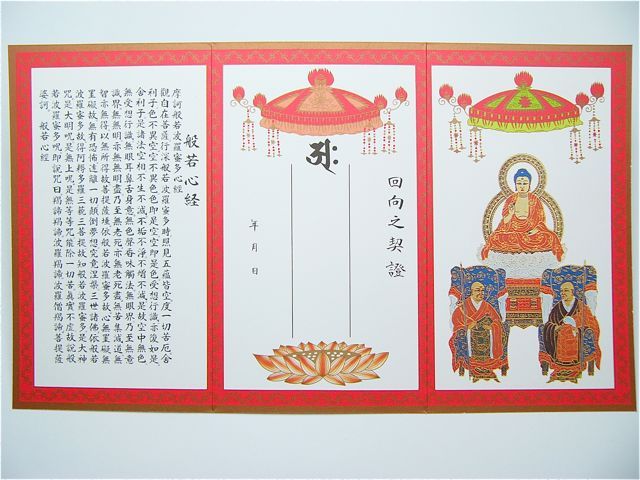 回向之契證
年月日
般若心経
摩訶般若波羅蜜多心経
觀自在菩薩行深般若波羅蜜多時照見五蘊皆空度一切苦厄舍
利子色不異空空不異色色即是空空即是色受想行識亦復如是
舍利子是諸法空相不生不滅不垢不淨不增不減是故空中無色
無受想行識無眼耳鼻舌身意無色聲香味觸法無眼界乃至無意
識界無無明亦無無明盡乃至無老死亦無老死盡無苦集滅道無
智亦無得以無所得故菩提薩埵依般若波羅蜜多故心無罣礙無
罣礙故無有恐怖遠離一切顛倒夢想究竟涅槃三世諸佛依般若
波羅蜜多故得阿耨多羅三藐三菩提故知般若波羅蜜多是大神
咒是大明咒是無上咒是無等等咒能除一切苦真實不虛故說般
若波羅蜜多咒即說咒曰揭諦揭諦波羅揭諦波羅僧揭諦菩提薩
婆訶 般若心経